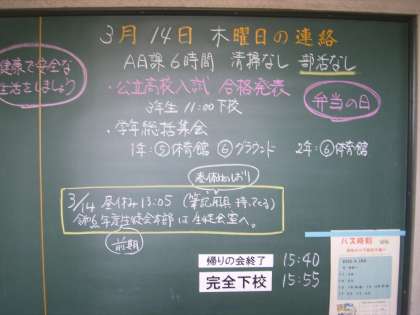 3月14日 木曜日の連絡
A日課6時間 清掃なし 部活なし
健康で安全な
生活をしましょう
・公立高校入試 合格発表
3年生 11:00下校
弁当の日
・学年総括集会
1年:⑤体育館 ⑥グラウンド 2年:⑥体育館
春休みのしおり
3/14 昼休み13:05 (筆記用具 持ってくる)
令6年度生徒会本部は生徒会室へ。
前期
帰りの会終了 15:40
完全下校 15:55
バス時刻